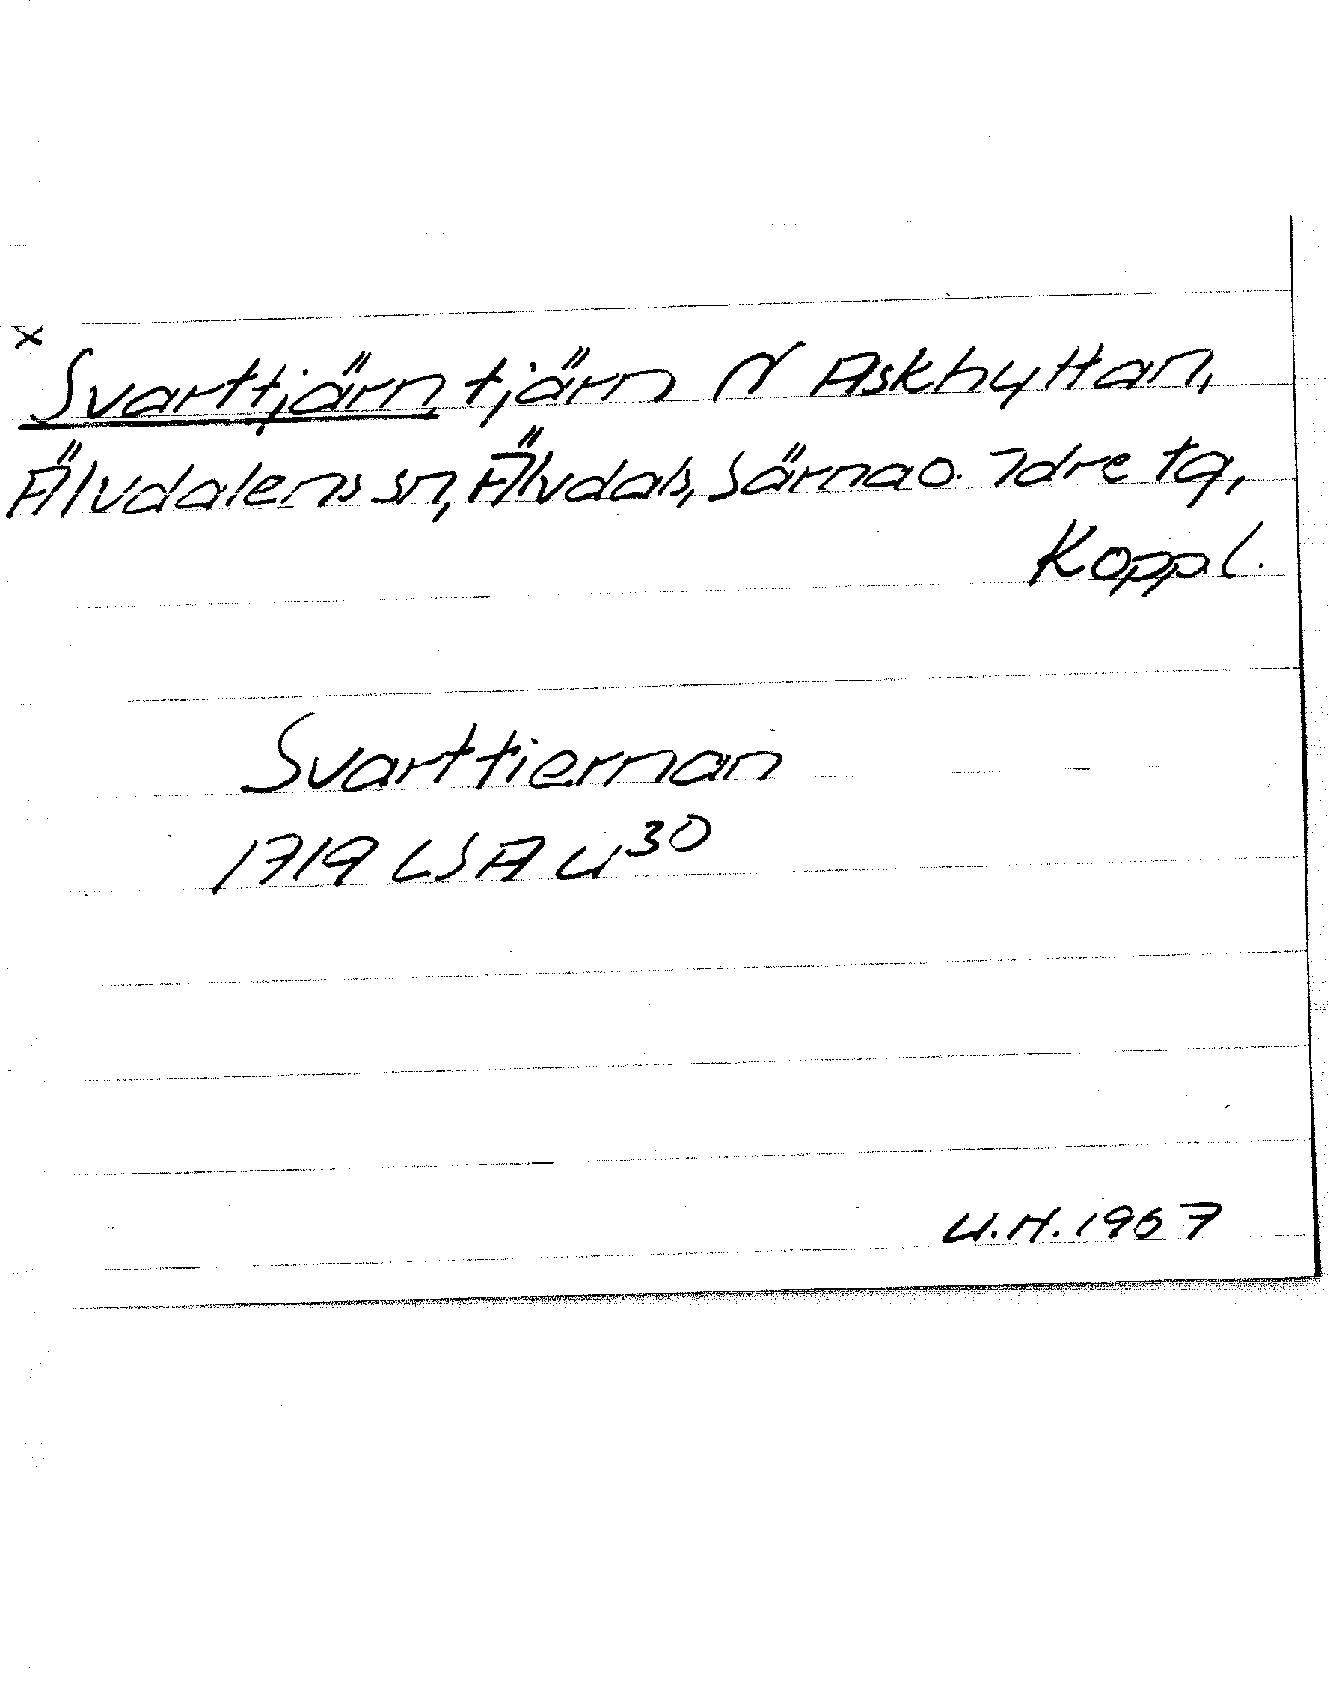 x
Svarttjärn, tjärn N Askhyttan,
Älvdalens sn, Älvdals, Särna o. Idre tg,
Koppl.
Svarttiernan
1719 LSA U³⁰
U.H. 1967